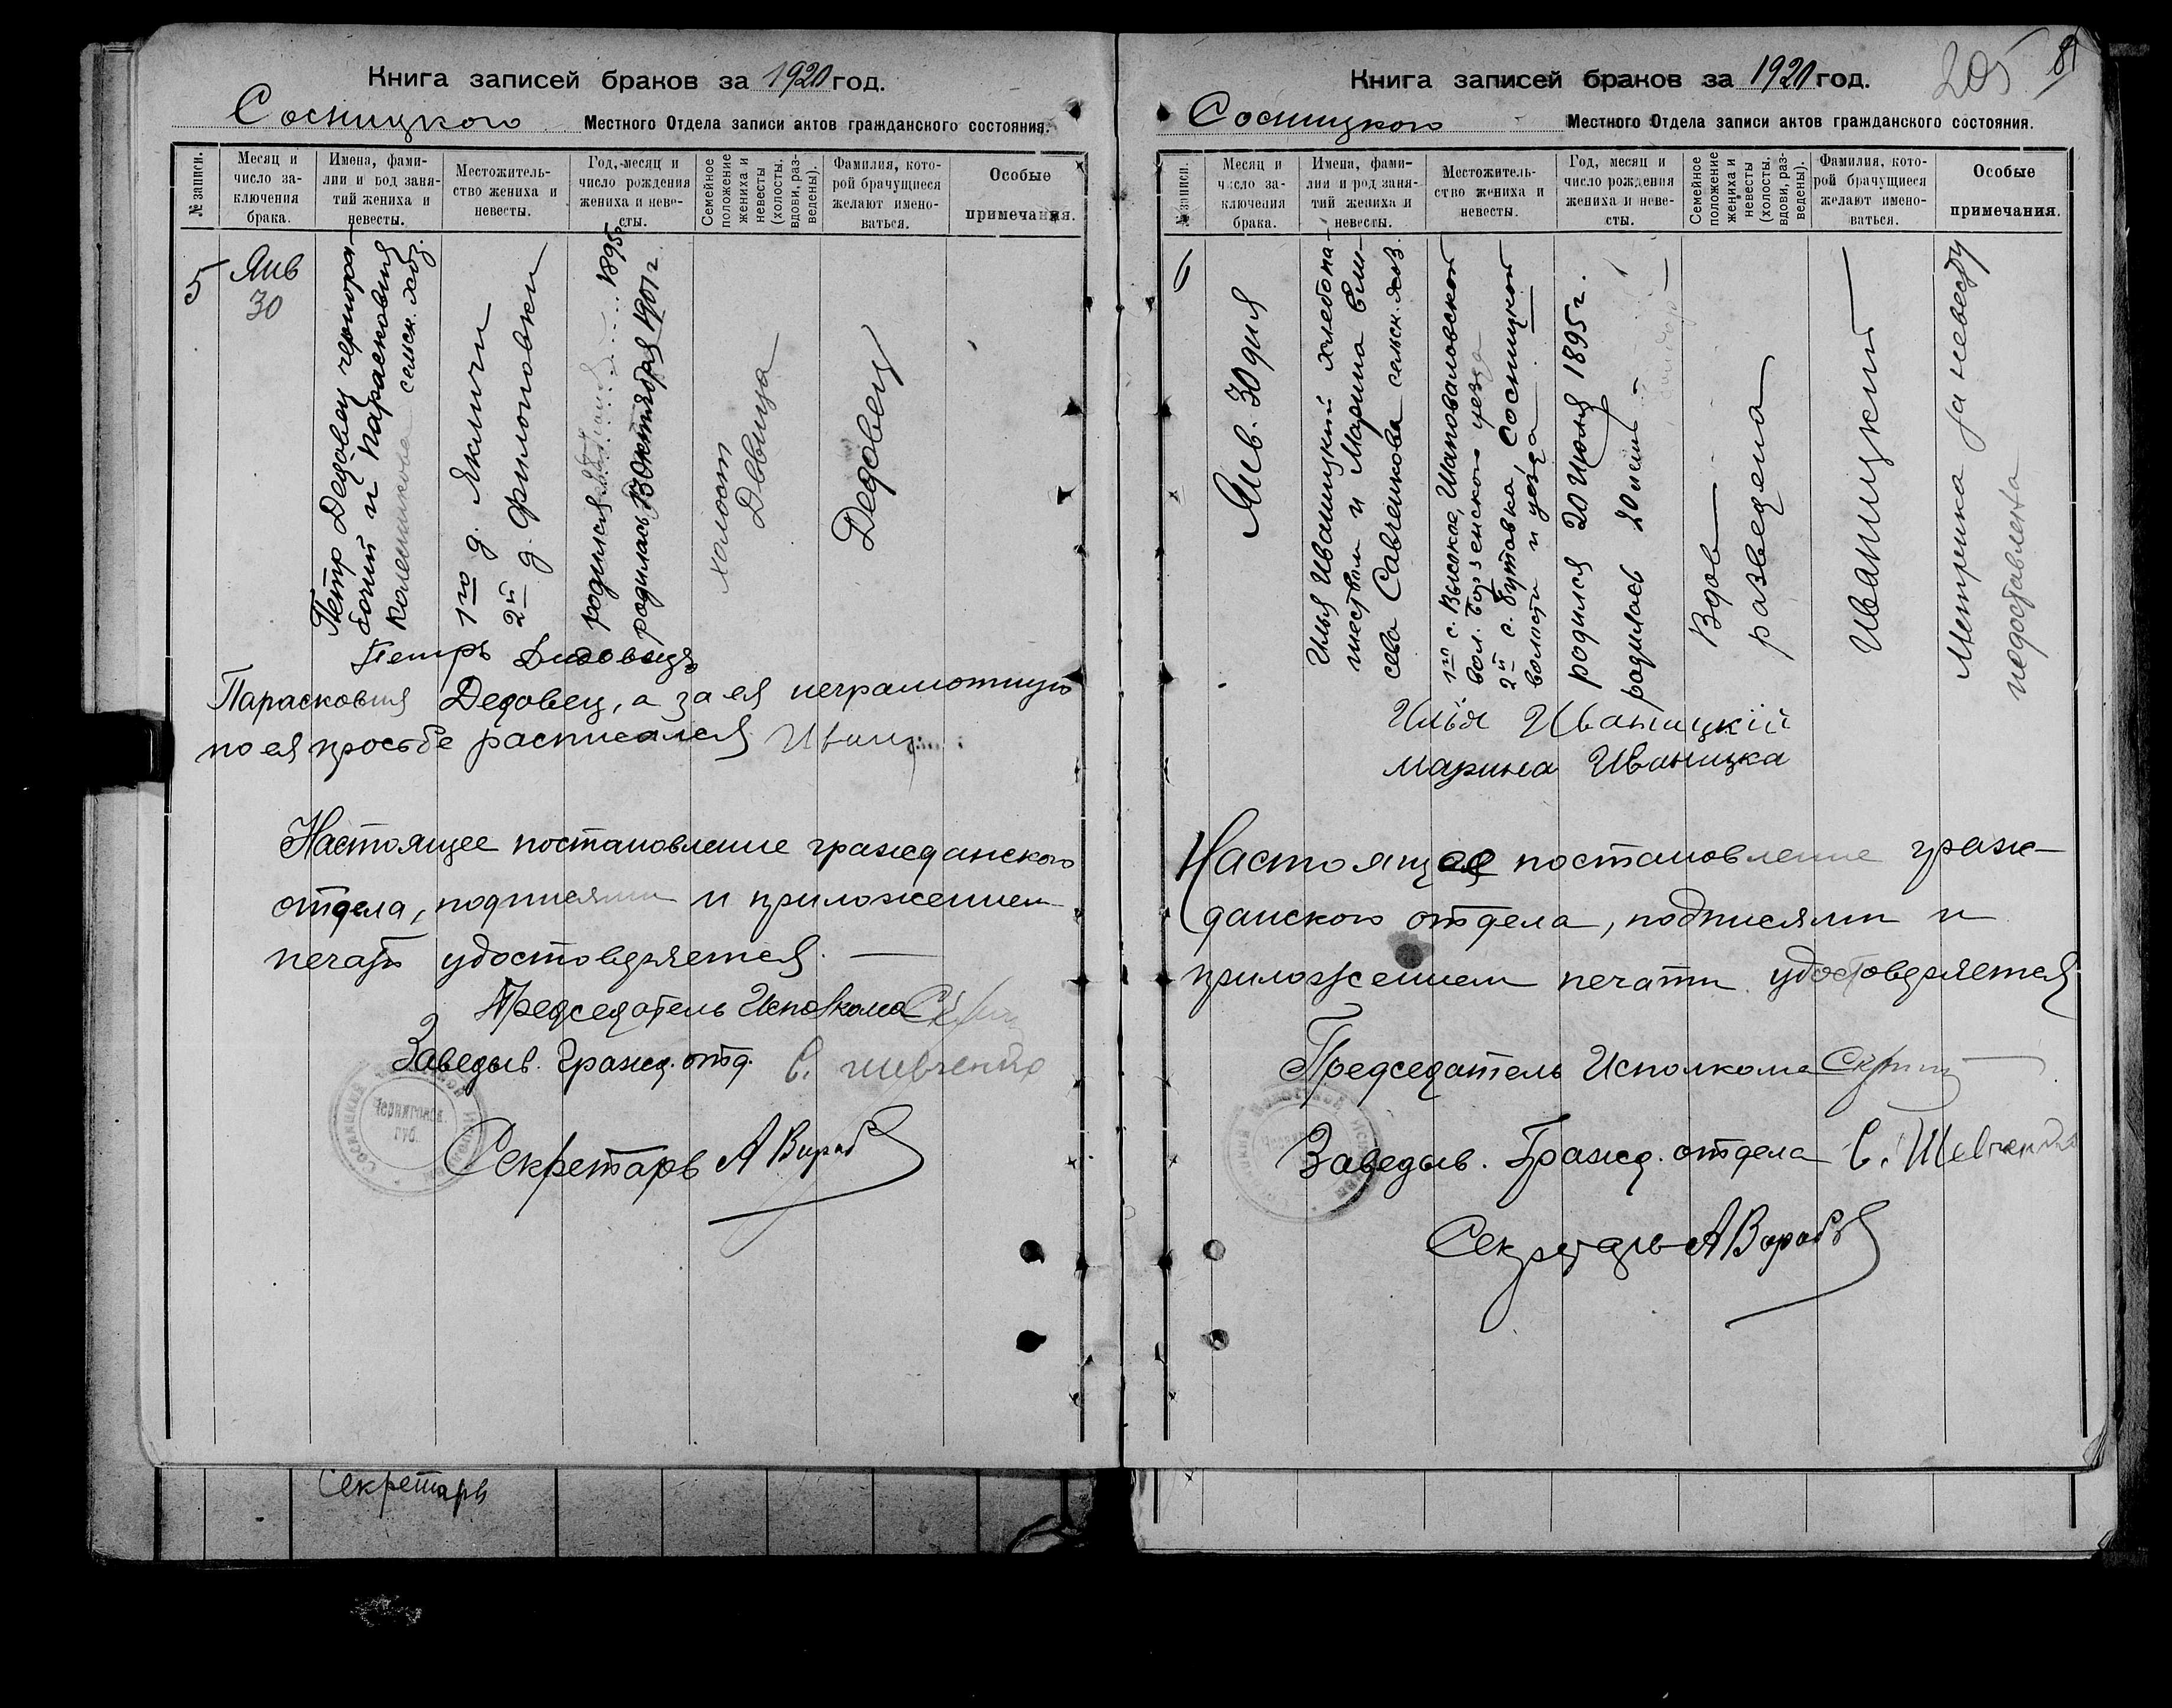 Книга записей браков за 1920 год.
Сосницкого Местного Отдела записи актов гражданского состояния.
№ записи.
Месяц и число заключения брака.
Имена, фамилии и род занятий жениха и невесты.
Местожительство жениха и невесты.
Год, месяц и число рождения жениха и невесты.
Семейное положение жениха и невесты (холосты, вдовы, разведены).
Фамилия, которой брачущиеся желают именоваться.
Особые примечания.
5
Янв
30
Петр Дедовец чернора-
бочий и Парасковия
Колесникова сельск. хоз.
1го д. Якличи
2й д. Филоповки
родился 1895г.
родилась 1901 г.
холост
Девица
Дедовец
Петръ Дидовецъ
Парасковия Дедовец, а за ея неграмотную
по ея просьбе расписался
Настоящее постановление гражданского
отдела, подписями и приложением
печати удостоверяется.
Председатель Исполкома
Заведыв. Гражд. отд. С. Шевченко
Черниговск.
губ.
Секретарь А
Книга записей браков за 1920 год.
205
Сосницкого Местного Отдела записи актов гражданского состояния.
№ записи.
Месяц и число заключения брака.
Имена, фамилии и род занятий жениха и невесты.
Местожительство жениха и невесты.
Год, месяц и число рождения жениха и невесты.
Семейное положение жениха и невесты (холосты, вдовы, разведены).
Фамилия, которой брачущиеся желают именоваться.
Особые примечания.
Янв. 30 дня
Илья Иваницкий хлебопа-
шеством и Марина Ели-
сева Савченкова сельск. хоз.
1й с. Высокое, Шаповаловской
вол. Борзенского уезда
2й с. Бутовка, Сосницкой
волости и уезда
родился 20 Июля 1895 г.
родилась 20 лет
Вдов
разведена
Иваницкий
Метрика за невесту
недоставлена
Илья Иваницкій
Марина Иваницка
Настоящее постановление граж-
данского отдела, подписями и
приложением печати удостоверяется
Председатель Исполкома
Заведыв. Гражд. отдела С. Шевченко
Секретарь А
Секретарь